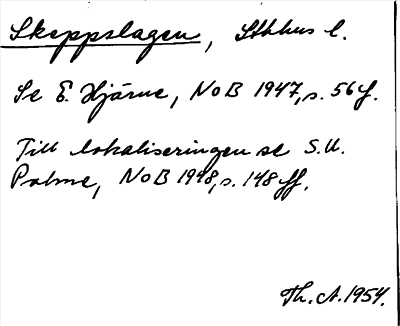 Skeppslagen, Sthlms l.
Se E. Hjärne, NoB 1947, s. 56 f.
Till lokaliseringen se S.U.
Palme, NoB 1948, s. 148 ff.
Th. A. 1954.